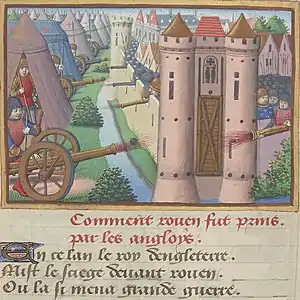 Comment rouen fut prins
par les angloys.
En ce lan le roy dengleterre.
Mist le siege devant rouen.
Ou la si mena grande guerre.